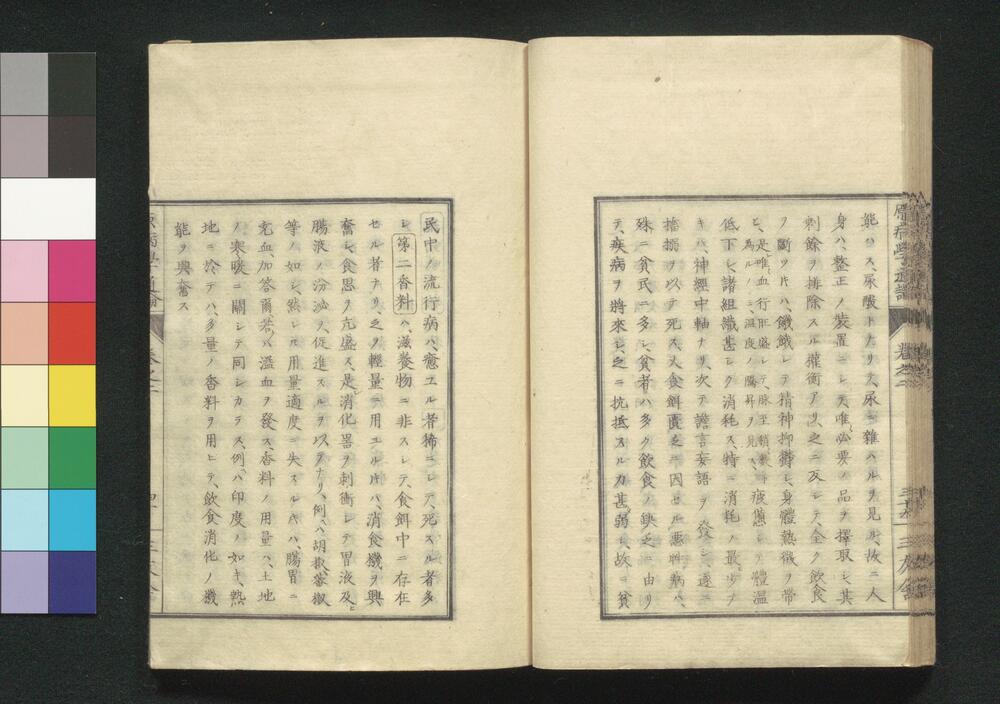 能ハス、尿酸トナリテ、尿ニ雜ハルヲ見ル、故ニ人
身ハ、整正ノ裝置ニシテ、唯必要ノ品ヲ擇取シ、其
剩餘ヲ排除スル權衡アリ、之ニ反シテ、全ク飲食
ヲ斷ツトハ、饑餓シテ精神抑鬱シ、身體熱微ヲ帶
ヒ、是唯血行旺盛シテ、脉至頻數
爲ルノミ、溫度ノ騰昇ヲ見ス、疲憊シテ體溫
低下シ、諸組織甚シク消耗ス、特ニ消耗ノ最少ナ
キハ、神經中軸ナリ、次テ譫言妄語ヲ發シ、遂ニ
搐搦ヲ以テ死ス、人食餌匱乏ニ因セル惡性病ハ、
殊ニ貧民ニ多シ、貧者ハ多ク飲食ノ缺乏ニ由リ
テ、疾病ヲ將來シ、之ニ抗抵スル力甚弱シ、故ニ貧
民中ノ流行病ハ、癒ユル者稀ニシテ、死スル者多
シ 第二香料 ハ、滋養物ニ非スシテ、食餌中ニ存在
セル者ナリ、之ヲ輕量ニ用ユルトハ、消食機ヲ興
奮シ、食思ヲ亢盛ス、是消化器ヲ刺衝シテ胃液及ヒ
腸液ノ汾泌ヲ促進スルヲ以テナリ、例ヘハ胡椒蕃椒
等ノ如シ、然レ𪜈用量適度ニ失スルトハ、腸胃ニ
充血、加答爾、若クハ溢血ヲ發ス、香料ノ用量ハ、土地
ノ寒暖ニ關シテ同シカラス、例ヘハ印度ノ如キ、熱
地ニ冷テハ、多量ノ香料ヲ用ヒテ、飲食消化ノ機
能ヲ興奮ス